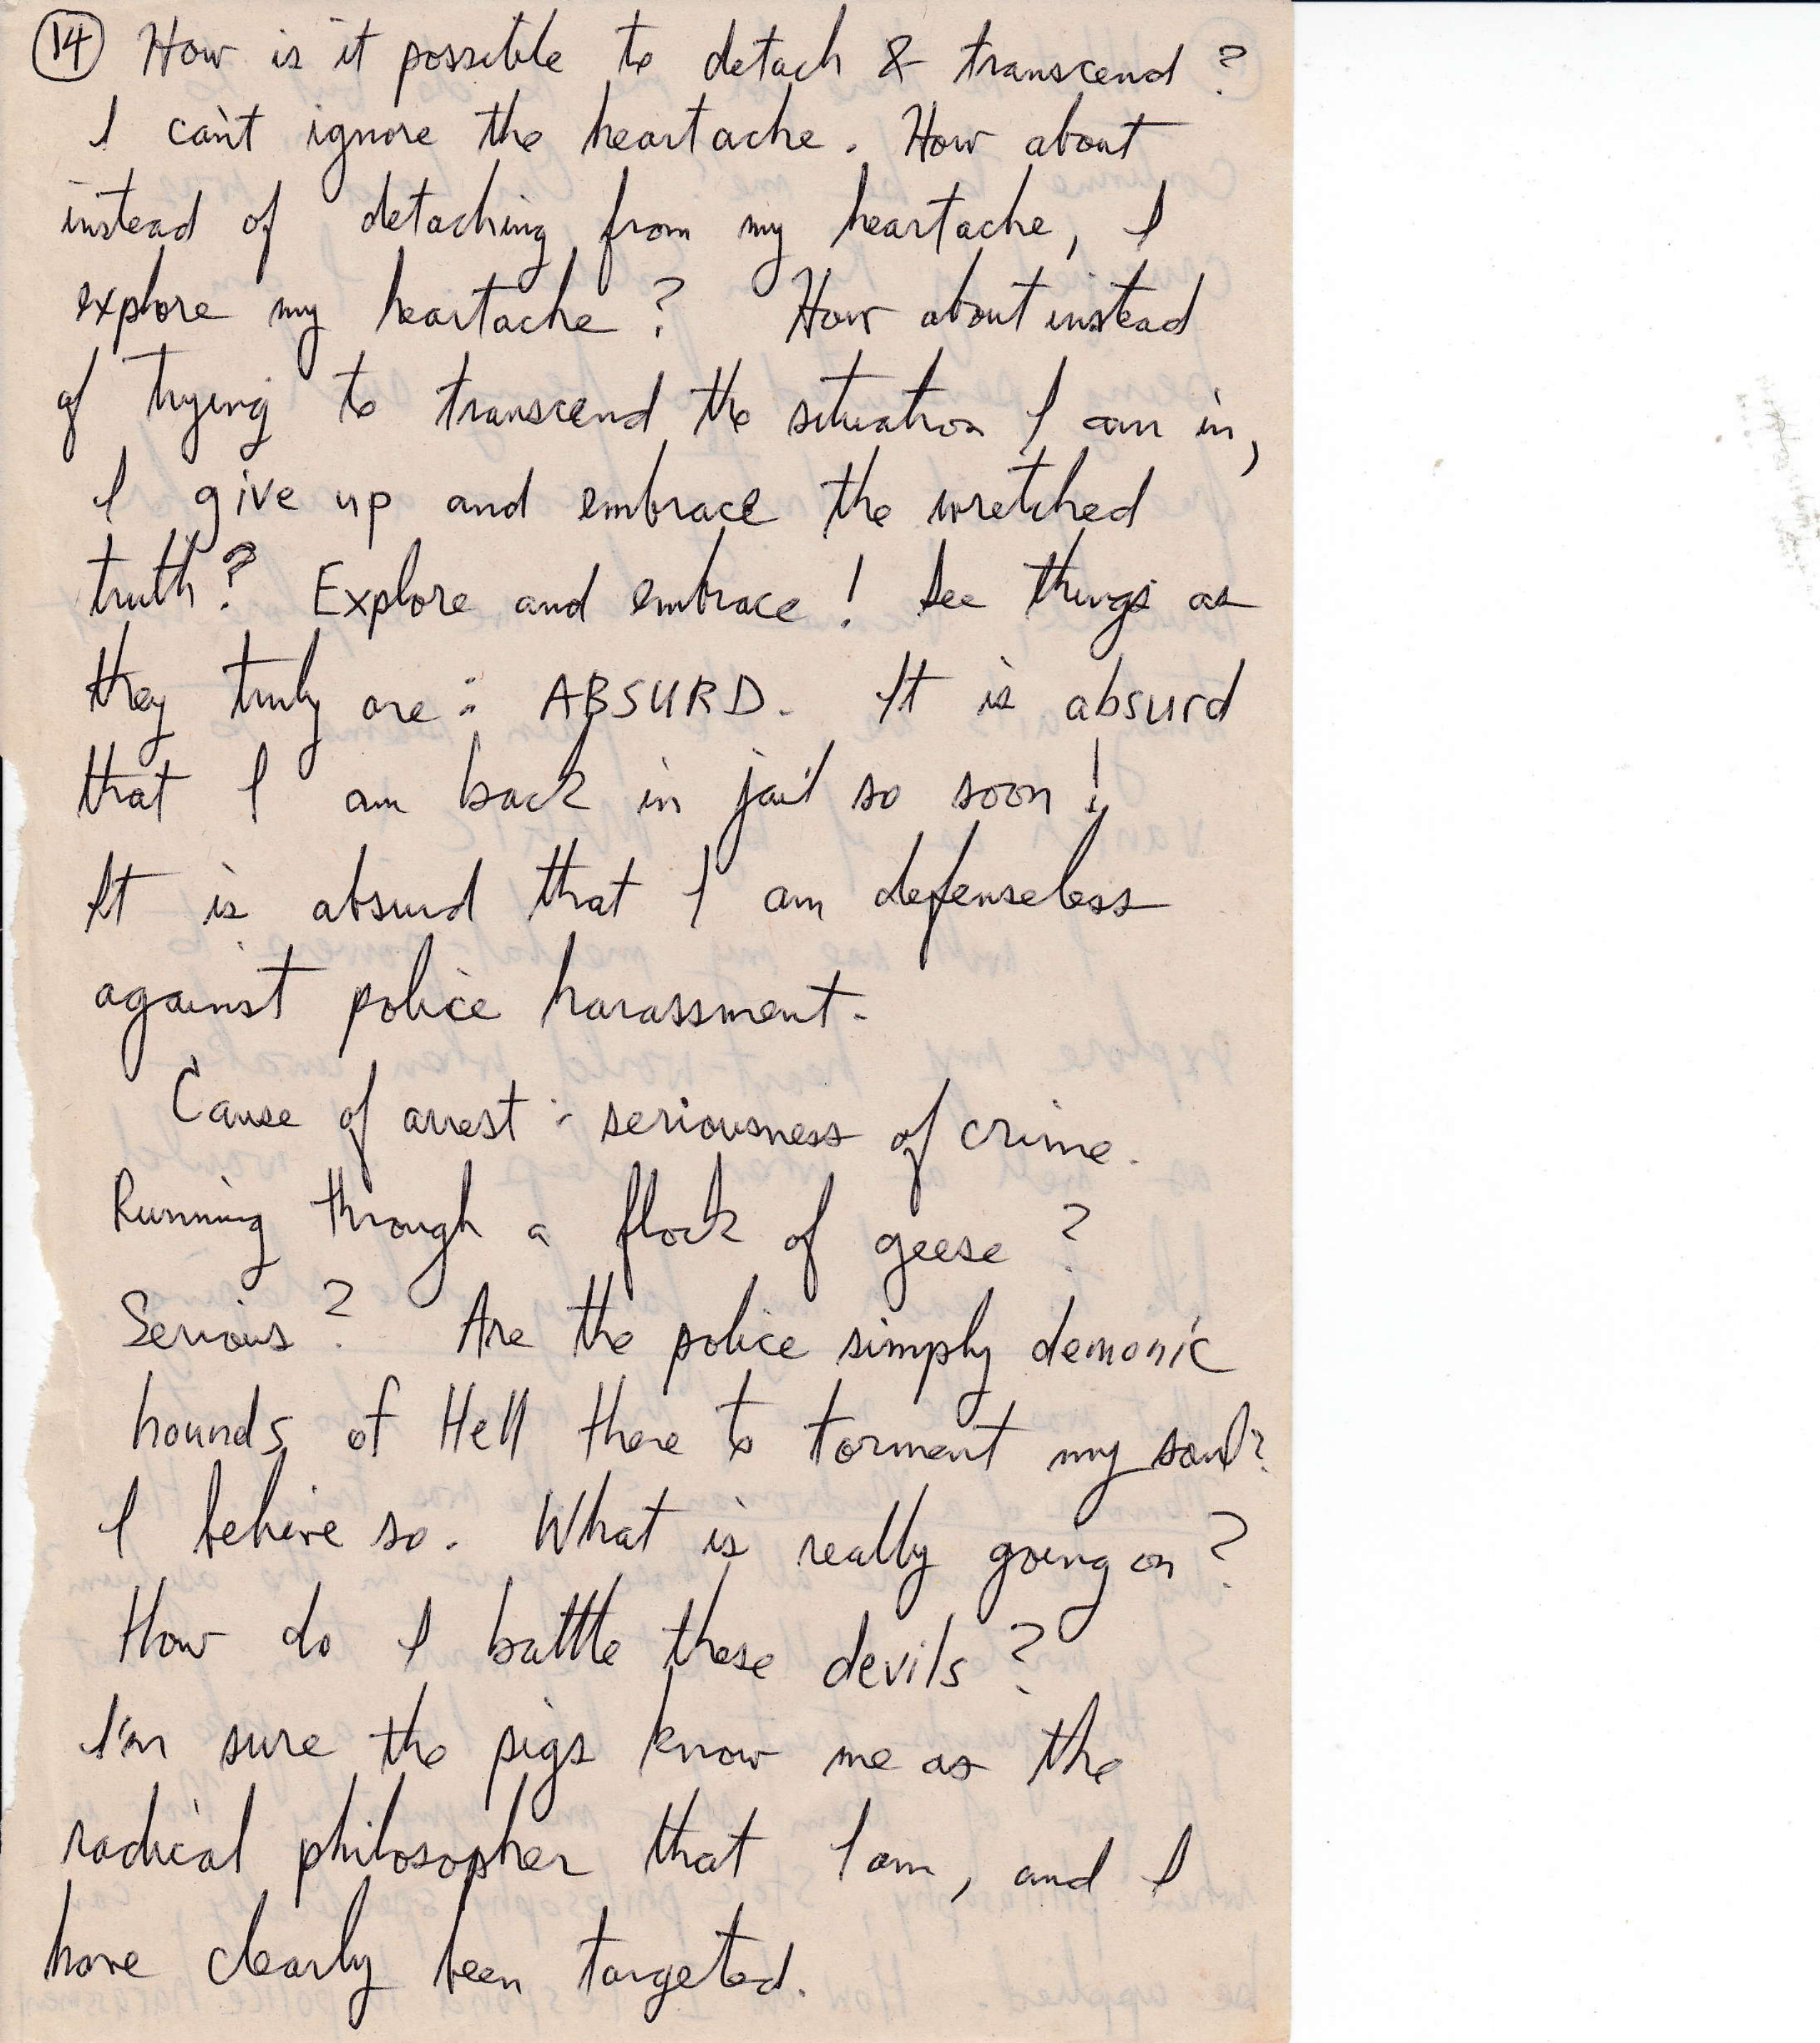 14 How is it possible to detach & transcend?
I can't ignore the heartache. How about
instead of detaching from my heartache, I
explore my heartache? How about instead
of trying to transcend the situation I am in,
I give up and embrace the wretched
truth? Explore and embrace! See things as
they truly are: ABSURD. It is absurd
that I am back in jail so soon!
It is absurd that I am defenseless
against police harassment.
Cause of arrest: seriousness of crime.
Running through a flock of geese?
Serious? Are the police simply demonic
hounds of Hell there to torment my soul?
I believe so. What is really going on?
How do I battle these devils?
I'm sure the pigs know me as the
radical philosopher that I am, and I
have clearly been targeted.